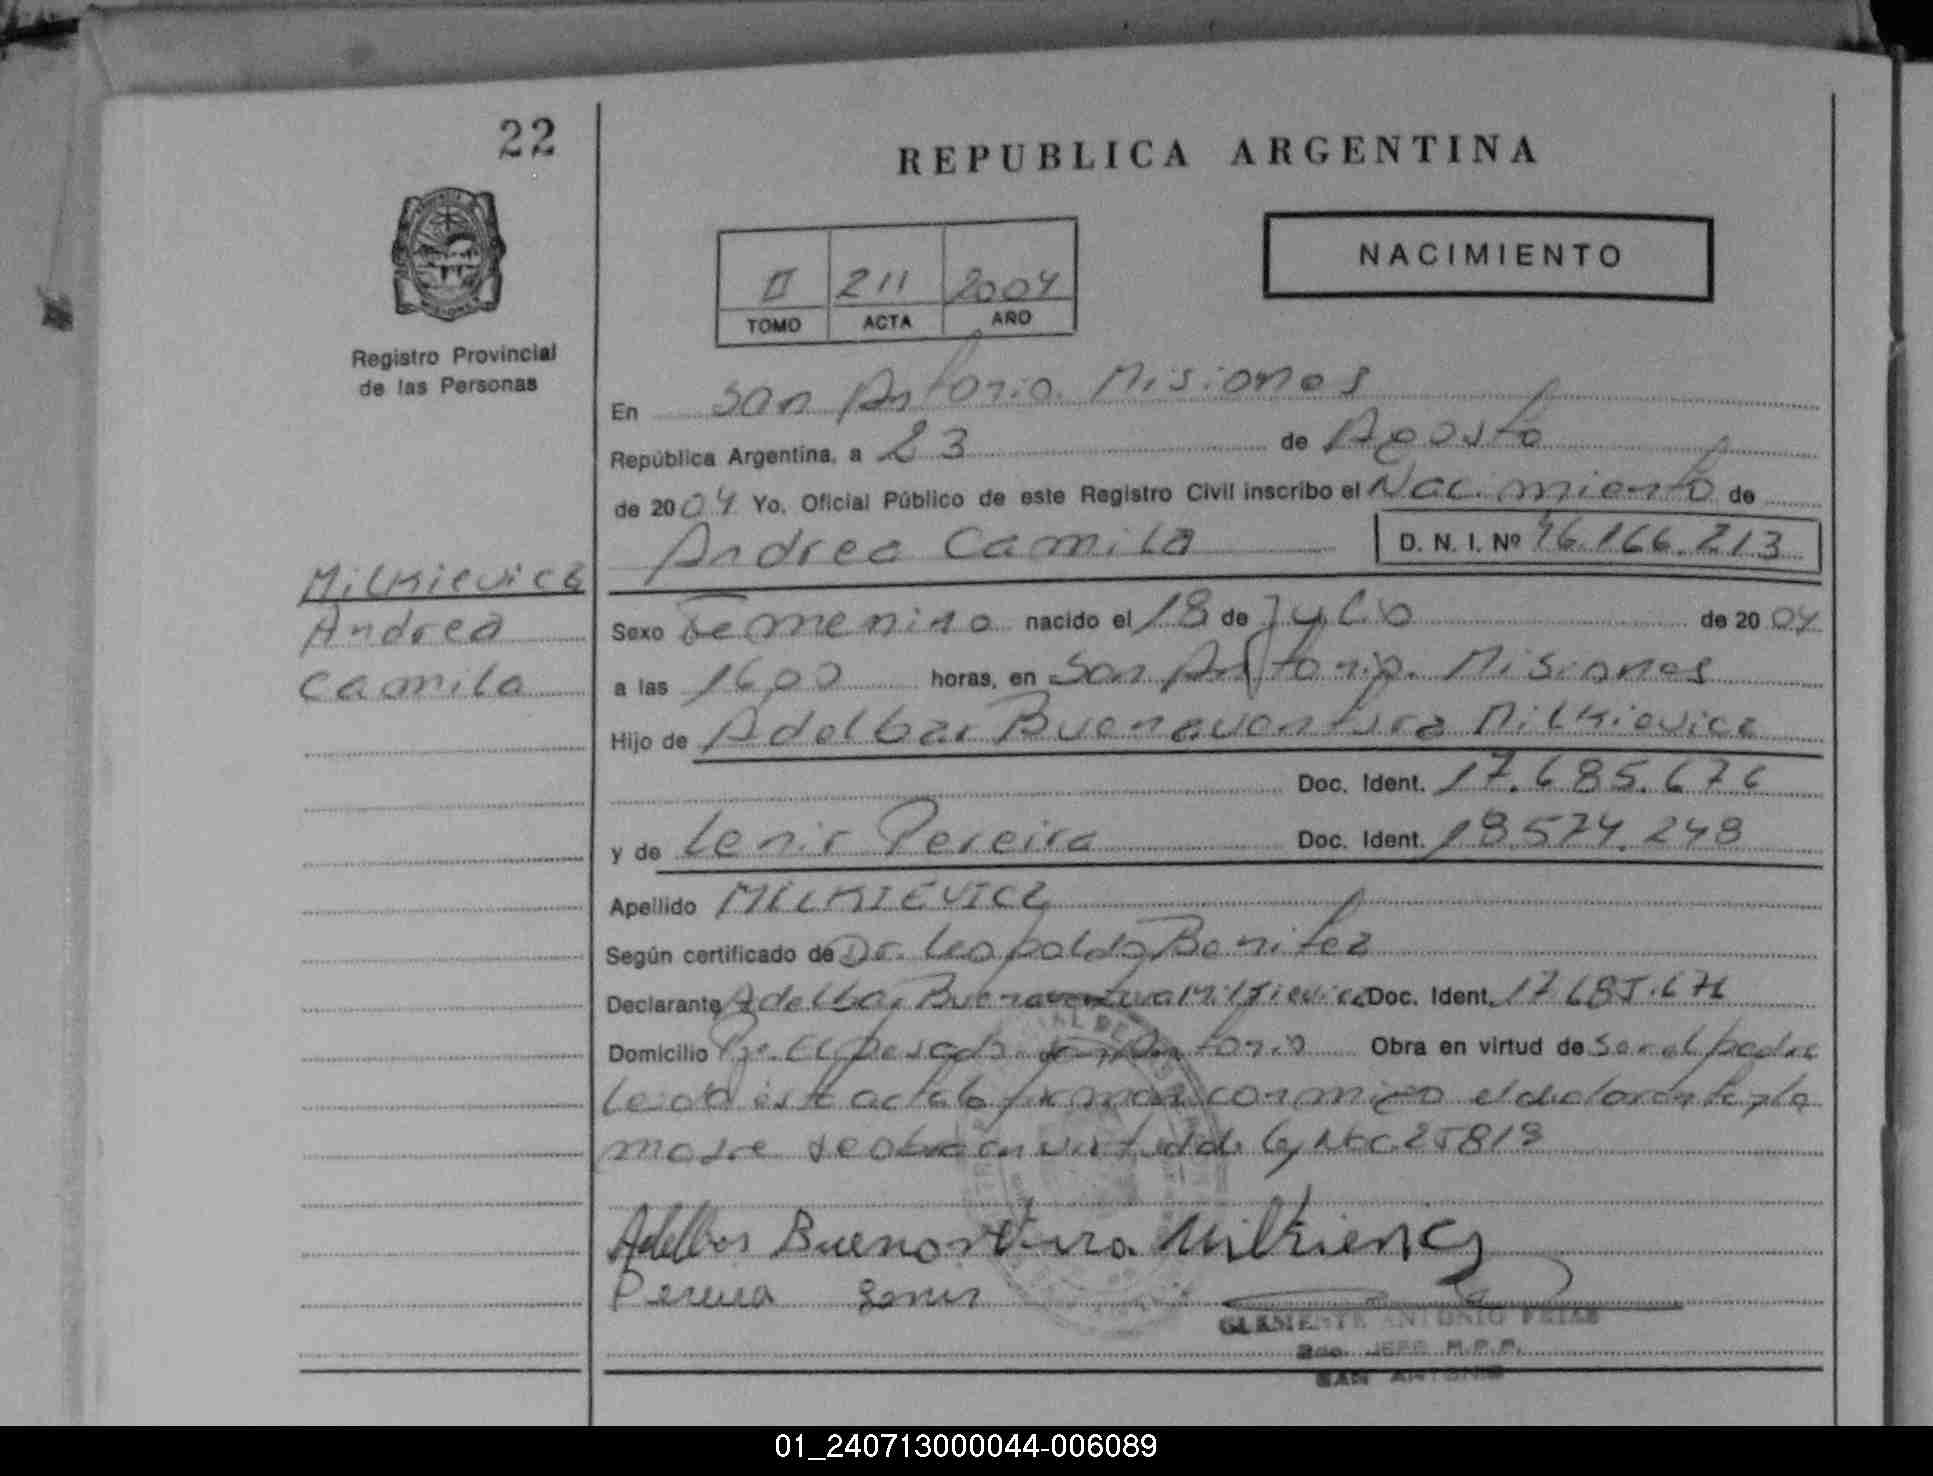 22
REPUBLICA ARGENTINA
NACIMIENTO
II 211 2004
TOMO ACTA AÑO
Registro Provincial
de las Personas
En San Antonio. Misiones
República Argentina, a 23 de Agosto
de 2004 Yo, Oficial Público de este Registro Civil inscribo el Nacimiento de
Andrea Camila D. N. I. Nº 46.166.213
Milkievicz
Andrea
Camila
Sexo Femenino nacido el 18 de Julio de 2004
a las 16,00 horas, en San Antonio. Misiones
Hijo de Adelbar Buenaventura Milkievicz
Doc. Ident. 17.685.676
y de Lenir Pereira Doc. Ident. 18.574.248
Apellido MILKIEVICZ
Según certificado de Dr. Leopoldo Benitez
Declarante Adelbar Buenaventura Milkievicz Doc. Ident. 17.685.676
Domicilio San Antonio Obra en virtud de Ser el padre
Leida esta acta la firman conmigo el declarante y la
madre se obra en virtud de Ley Nac. 25819
Adelbar Buenaventura Milkievicz
Pereira Lenir
CLEMENTE ANTONIO FRIAS
2do. JEFE R.P.P.
SAN ANTONIO
01_240713000044-006089